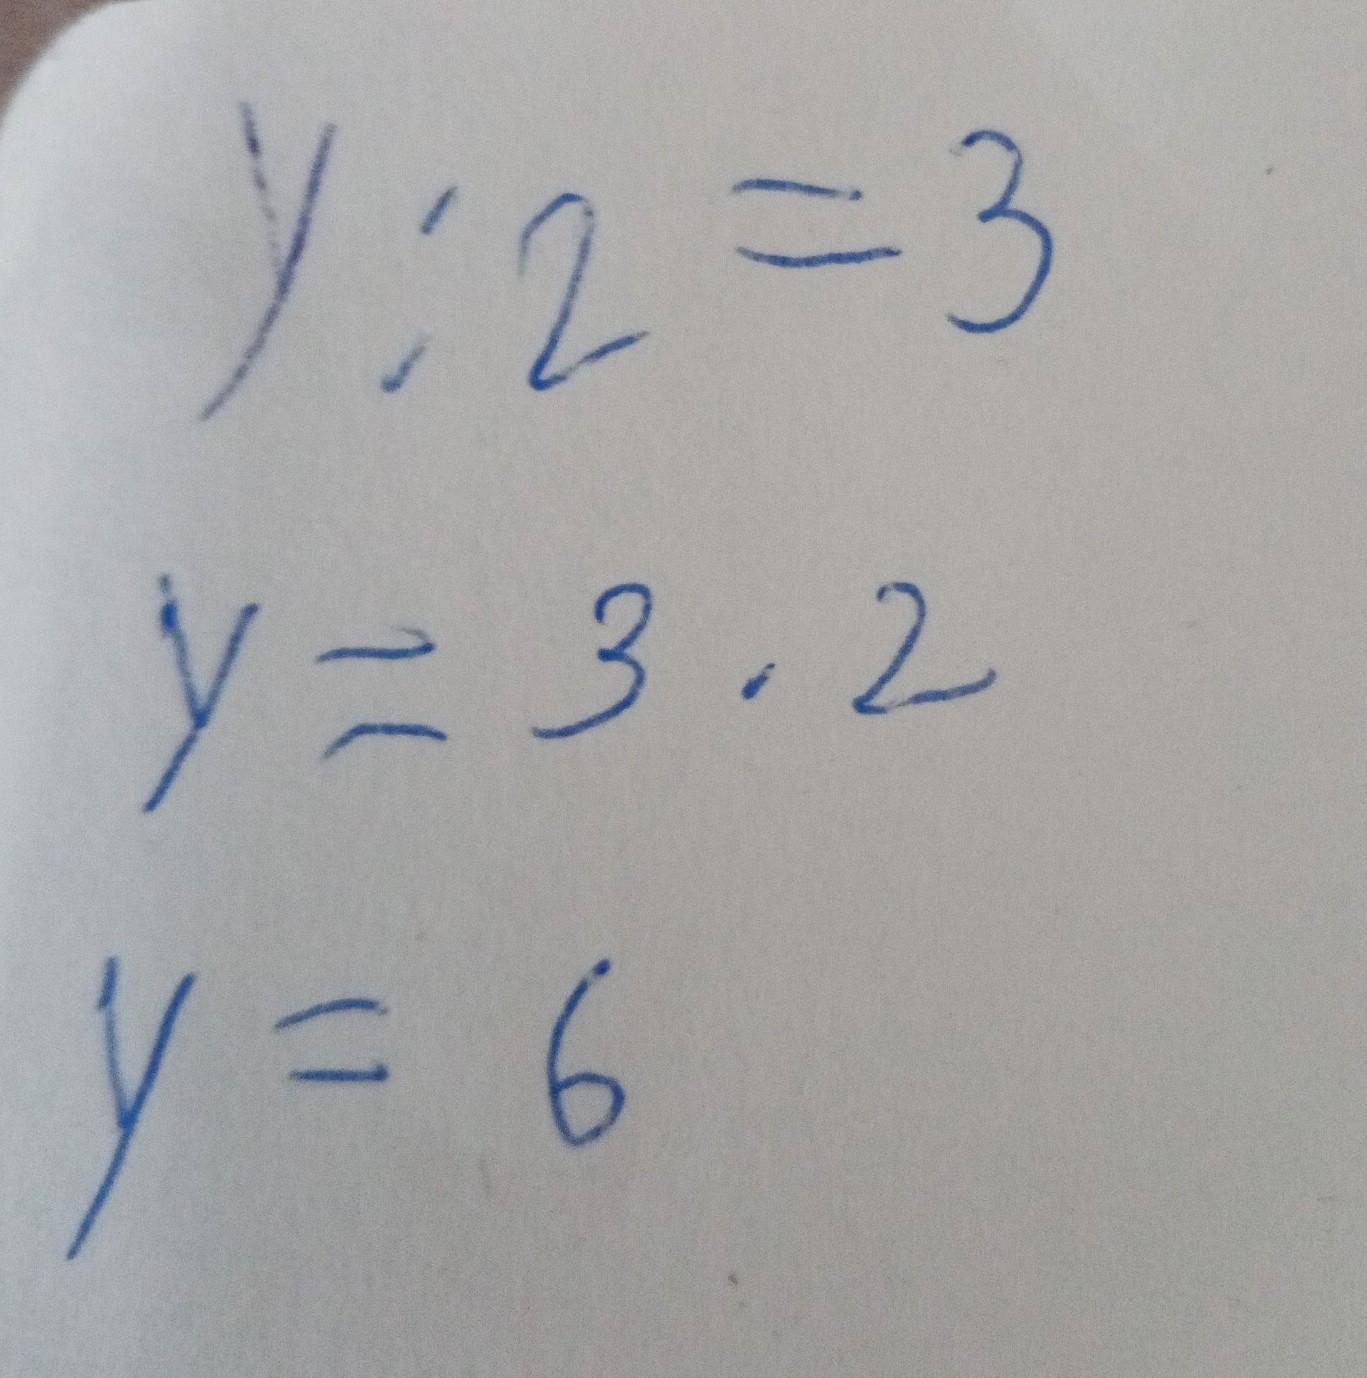 y : 2 = 3
y = 3 . 2
y = 6